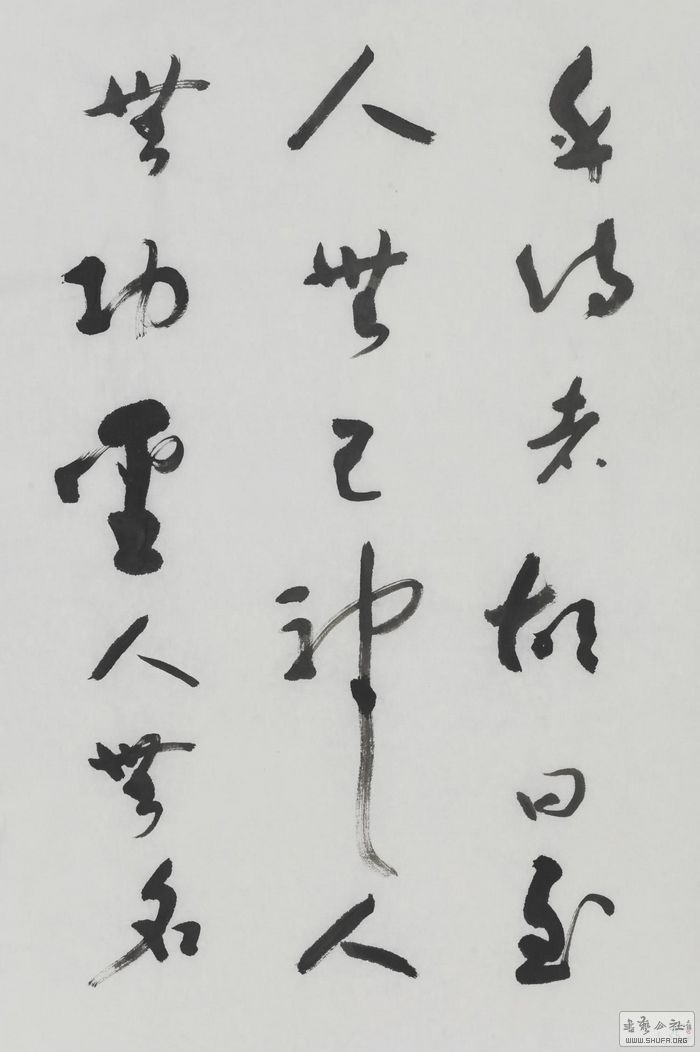 乎待者故曰至
人無己神人
無功聖人無名
書藝公社
WWW.SHUFA.ORG